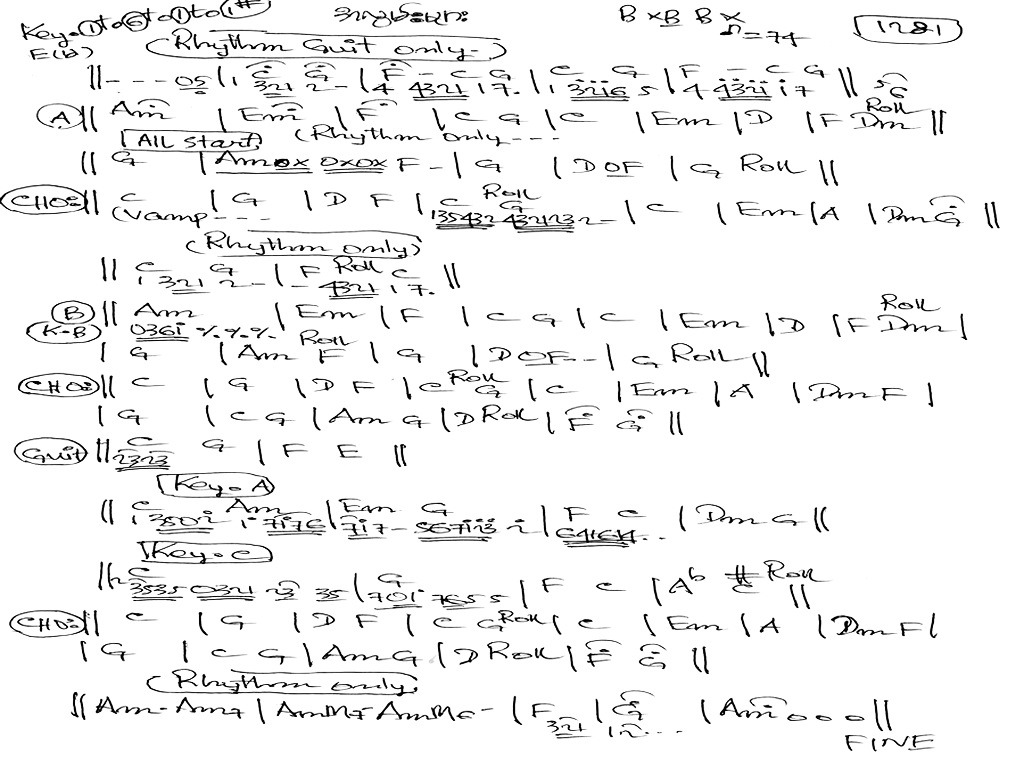 Key=①to⑥to①to①#    အလွမ်းများ    B x B B x
E(b)    ♫=74    1281
(Rhythm Guit only-)
||- - - - 05 | 1 C 321 G 2 - | F 4 - 4321 C 17. G | C 1 3216 G 5 | F 4 - 4321 C 17 G || 56
Ⓐ || Am | Em | F | C G | C | Em | D | F Roll Dm ||
All start (Rhythm only - - -
|| G | Am 0x 0x0x F - | G | D 0F | G Roll ||
CHO: || C | G | D F | C Roll G | C | Em | A | Dm G ||
(Vamp - - - 135432 4321232 -
(Rhythm only)
|| C G | F Roll C ||
1 321 2 - - 4321 17.
Ⓑ || Am | Em | F | C G | C | Em | D | F Roll Dm |
K-B 0361 %.%.%.
| G | Am Roll F | G | D 0F-- | G Roll ||
CHO: || C | G | D F | C Roll G | C | Em | A | Dm F |
| G | C G | Am G | D Roll | F G ||
Guit || C G | F E ||
2323
Key=A
|| C Am | Em G | F C | Dm G ||
Key=C
|| C | G | F C | Ab # C Roll ||
3535 0321 23 35 | 701 7655
CHO: || C | G | D F | C G Roll | C | Em | A | Dm F |
| G | C G | Am G | D Roll | F G ||
(Rhythm only)
|| Am- Am7 | AmM7- AmM6 - | F | G | Am o o o ||
321 12. . . .
FINE